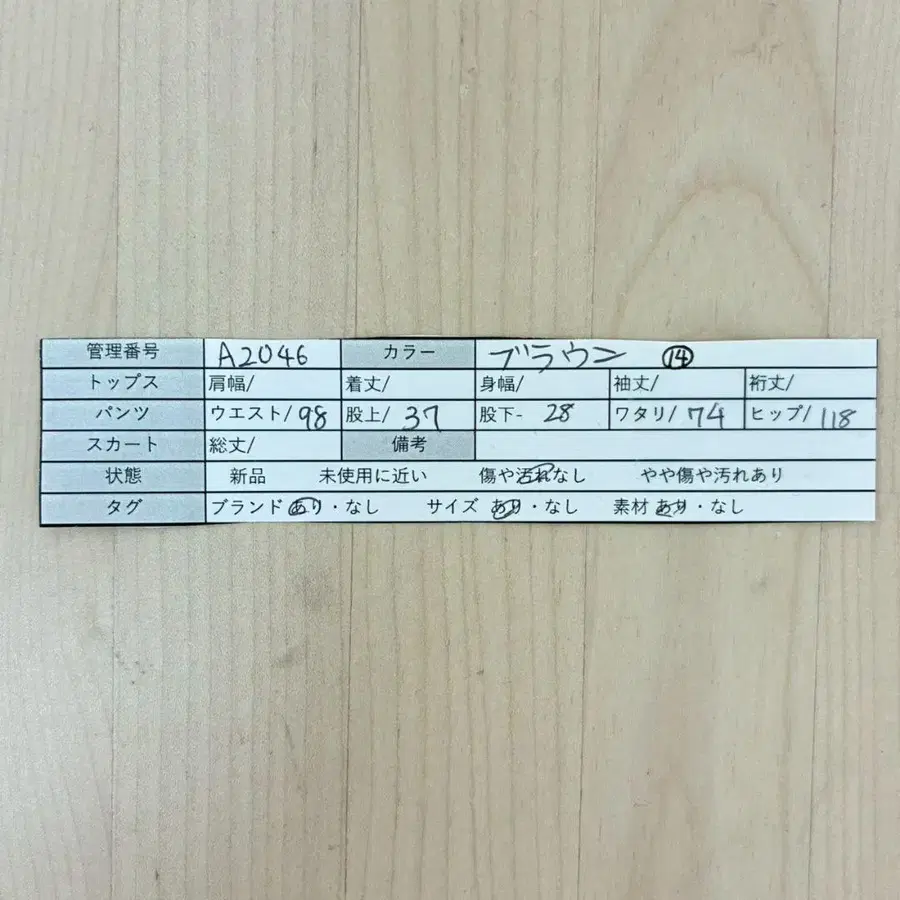 管理番号 A2046 カラー ブラウン ⑭
トップス 肩幅/ 着丈/ 身幅/ 袖丈/ 裄丈/
パンツ ウエスト/98 股上/37 股下- 28 ワタリ/74 ヒップ/118
スカート 総丈/ 備考
状態 新品 未使用に近い 傷や汚れなし やや傷や汚れあり
タグ ブランド あり・なし サイズ あり・なし 素材 あり・なし